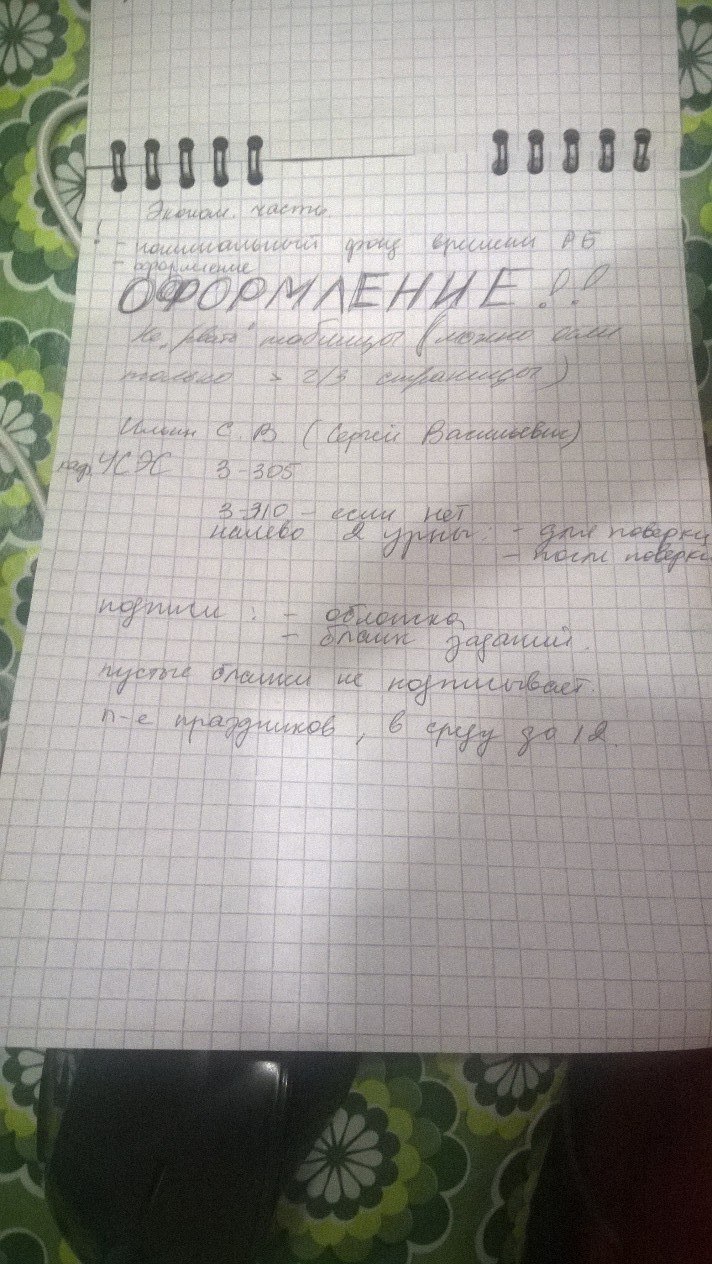 ! Эконом. часть.
- номинальный фонд времени РБ
- оформление
ОФОРМЛЕНИЕ!!
Не "рвать" таблицы (можно если
только > 2/3 страницы)
Ильин С. В. (Сергей Васильевич)
каф. УСЭС 3-305
3-310 - если нет
налево 2 урны: - для поверки
- после поверки
подписи: - обложка
- бланк заданий.
пустые бланки не подписывает.
п-е праздников, в среду до 12.